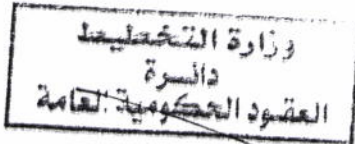 وزارة التخطيط
دائرة
العقود الحكومية العامة